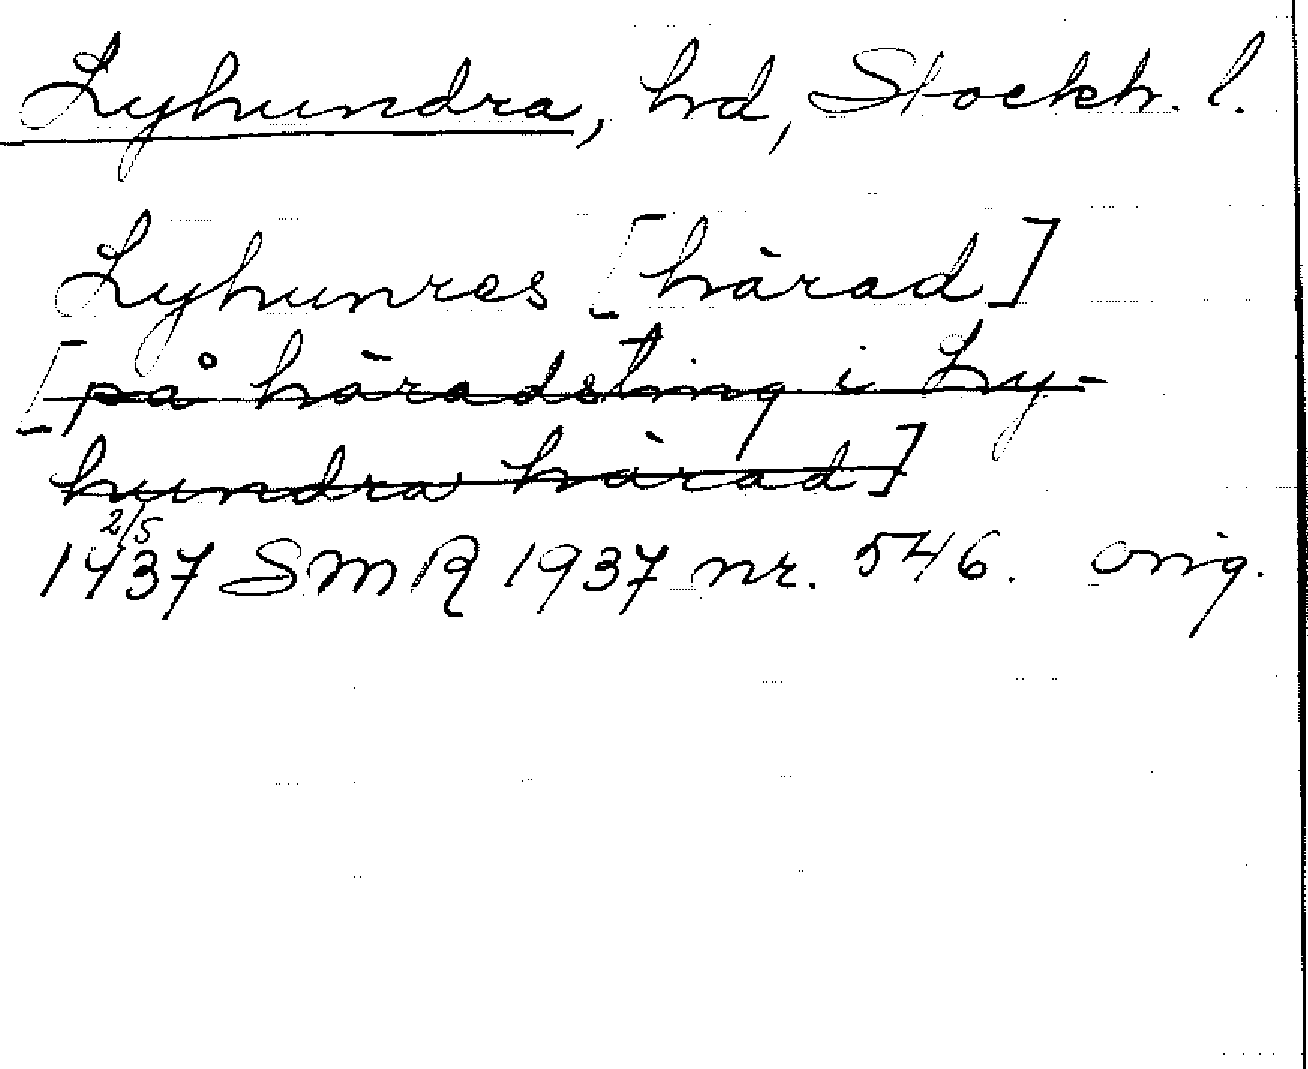 Lyhundra, hd, Stockh. l.
Lyhunres [härad]
[på häradsting i Ly-
hundra härad]
2/5
1437 SMR 1937 nr. 546. orig.